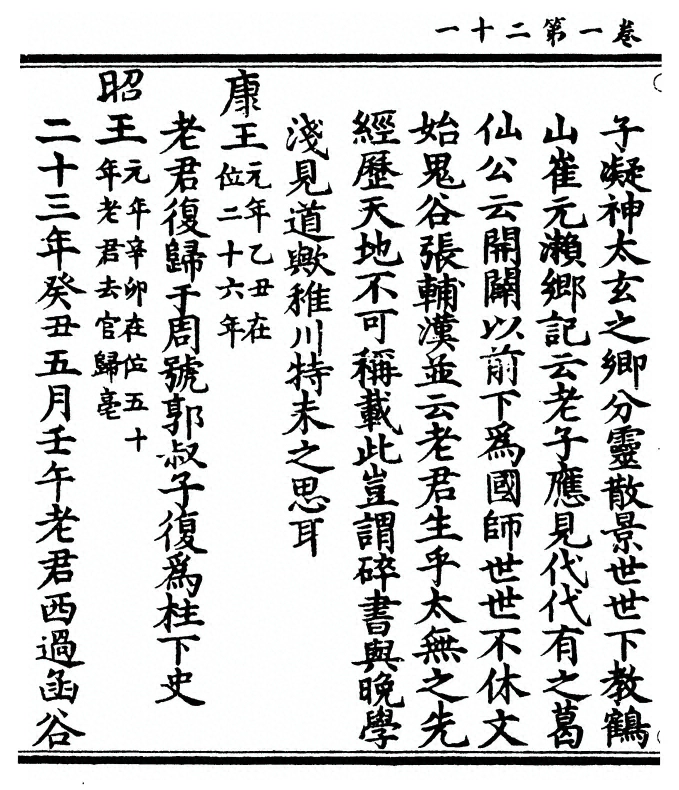 卷一第二十一
子凝神太玄之鄉分靈散景世世下教鶴
山崔元瀨鄉記云老子應見代代有之葛
仙公云開闢以前下為國師世世不休文
始鬼谷張輔漢並云老君生乎太無之先
經歷天地不可稱載此豈謂碎書與晚學
淺見道歟稚川特未之思耳
康王元年乙丑在
位二十六年
老君復歸于周號郭叔子復為柱下史
昭王元年辛卯在位五十
年老君去官歸亳
二十三年癸丑五月壬午老君西過函谷